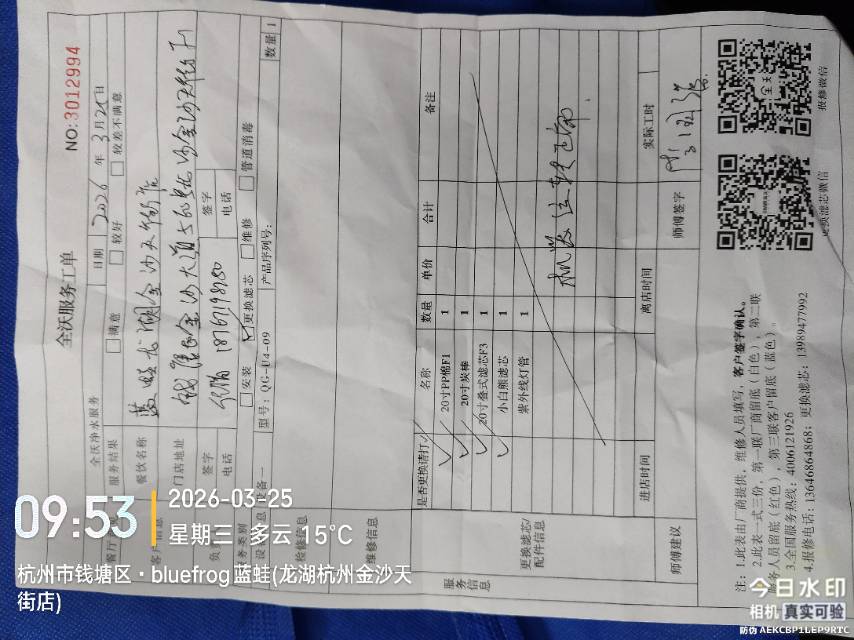 全沃服务工单
NO:3012994
全沃净水服务
日期 2026 年 3 月 25 日
服务结果 满意 较好 较差不满意
餐饮名称 蓝蛙龙湖金沙天街店
门店地址
签字 签字
电话 18167198180 电话
安装 更换滤芯 维修 管道消毒
设备一 型号: QG-U4-09 产品序列号: 数量 1
检修信息
维修信息
服务信息
更换滤芯/配件信息
是否更换请打√ 名称 数量 单价 合计 备注
√ 20寸PP棉F1 1
√ 20寸炭棒 1
√ 20寸叠式滤芯F3 1
√ 小白熊滤芯 1
紫外线灯管 1
机器运转正常
进店时间 离店时间 实际工时
师傅建议 师傅签字
注: 1.此表由厂商提供, 维修人员填写, 客户签字确认。
2.此表一式三份, 第一联厂商留底 (白色), 第二联
服务人员留底 (红色), 第三联客户留底 (蓝色)。
3.全国服务热线: 4006121926
4.报修电话: 13646864868; 更换滤芯: 13989477992
更换滤芯微信
报修微信
全天
09:53
2026-03-25
星期三 · 多云 15℃
杭州市钱塘区 · bluefrog蓝蛙(龙湖杭州金沙天
街店)
今日水印
相机 真实可验
防伪 AEKCBP1LEP9RTC